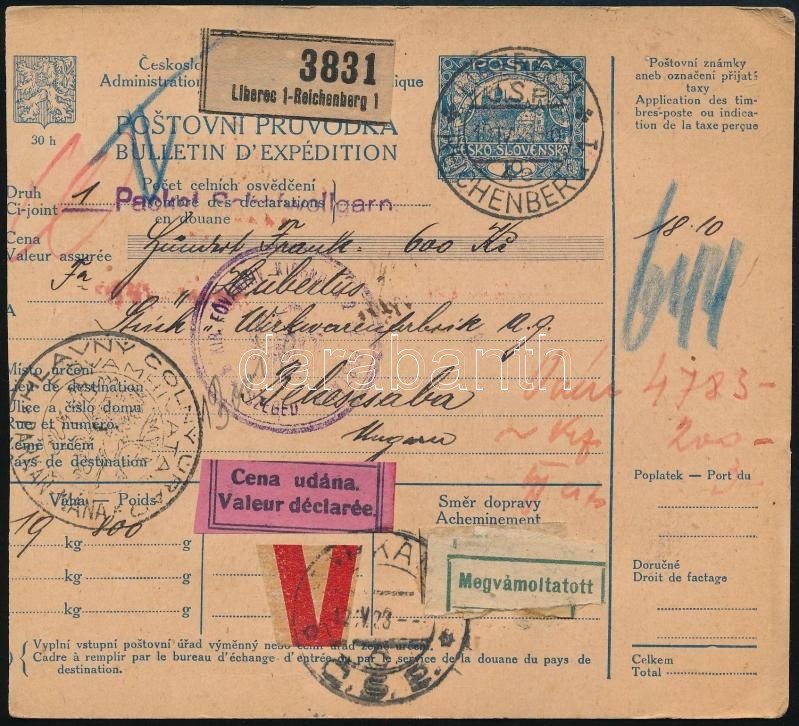 30 h
Českoslo
Administration
ique
3831
Liberec 1-Reichenberg 1
POŠTOVNÍ PRŮVODKA
BULLETIN D'EXPÉDITION
POŠTA
ČESKO-SLOVENSKÁ
REICHENBERG
Poštovní známky
aneb označení přijaté
taxy
Application des tim-
bres-poste ou indica-
tion de la taxe perçue
Druh
Ci-joint
1
Počet celních osvědčení
Nombre des déclarations
en douane
Cena
Valeur assurée
Hundert Frank. 600 Kč
18.10
644
Fa
"Hubertus"
A
Strick u. Wirkwarenfabrik A.G.
Místo určení
Lieu de destination
Bekescsaba
4783-
Ulice a číslo domu
Rue et numéro
200-
Země určení
Pays de destination
Ungarn
HLAVNÝ COLNÝ ÚRAD
PARKAN-NÁNA
SZEGED
darabanth
Cena udána.
Valeur déclarée.
Váha — Poids
19 800
kg g
kg g
kg g
V
Směr dopravy
Acheminement
Megvámoltatott
12.V.23
Č.S.P.
Poplatek — Port du
Doručné
Droit de factage
Celkem
Total
Vyplní vstupní poštovní úřad výměnný nebo celní úřad země určení.
Cadre à remplir par le bureau d'échange d'entrée ou par le service de la douane du pays de
destination.